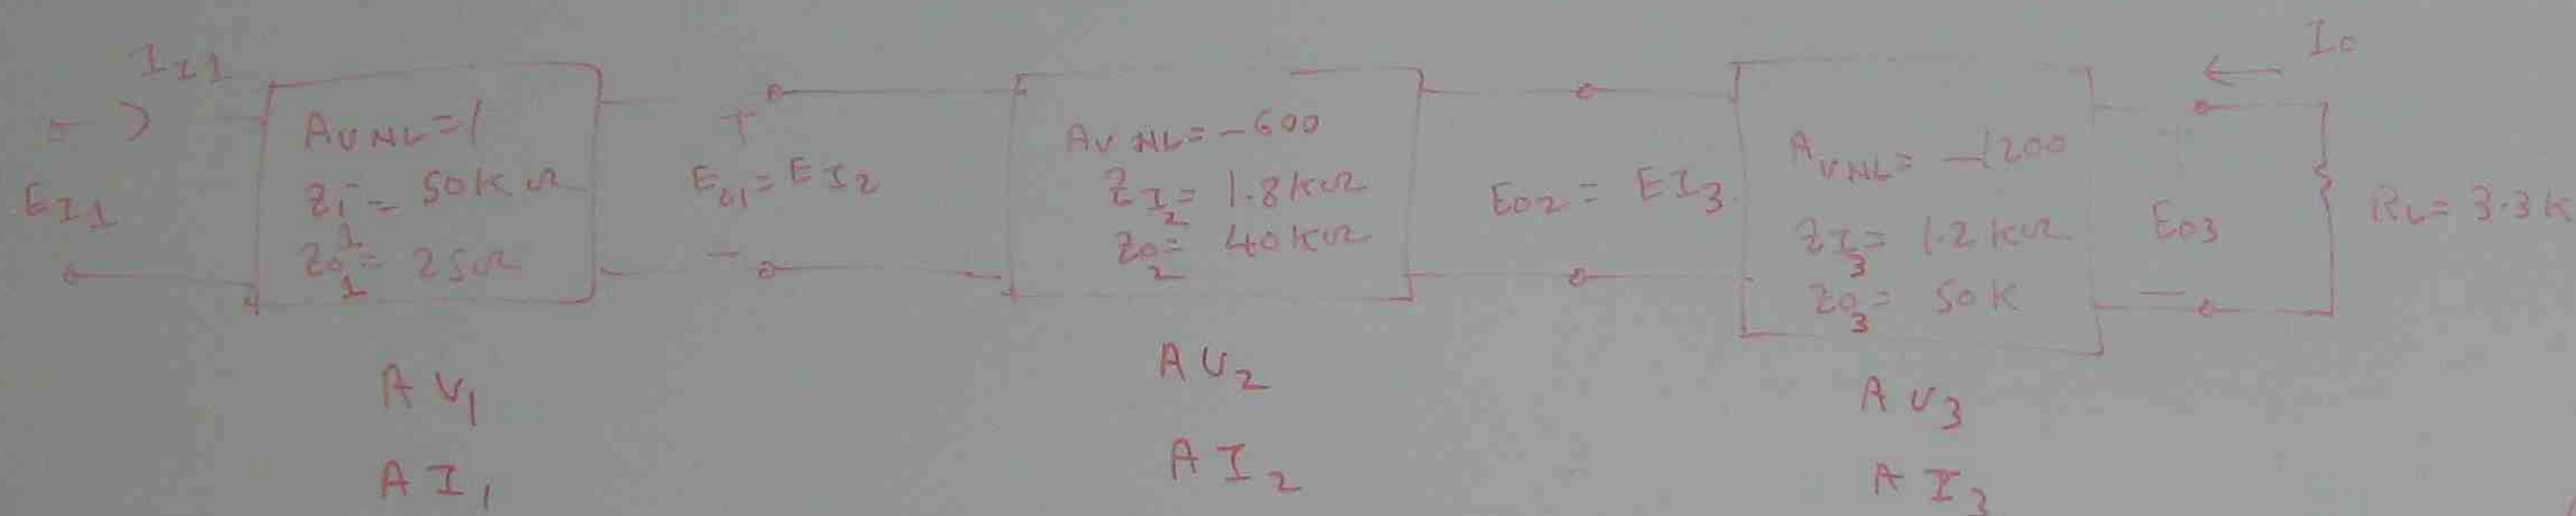 I I1
EI1
AVNL=1
Zi1= 50KΩ
Zo1= 25Ω
AV1
AI1
+
Eo1=EI2
-
AVNL=-600
ZI2= 1.8KΩ
Zo2= 40KΩ
AV2
AI2
Eo2= EI3
AVNL= -1200
ZI3= 1.2KΩ
Zo3= 50K
AV3
AI3
Io
+
Eo3
-
RL= 3.3K